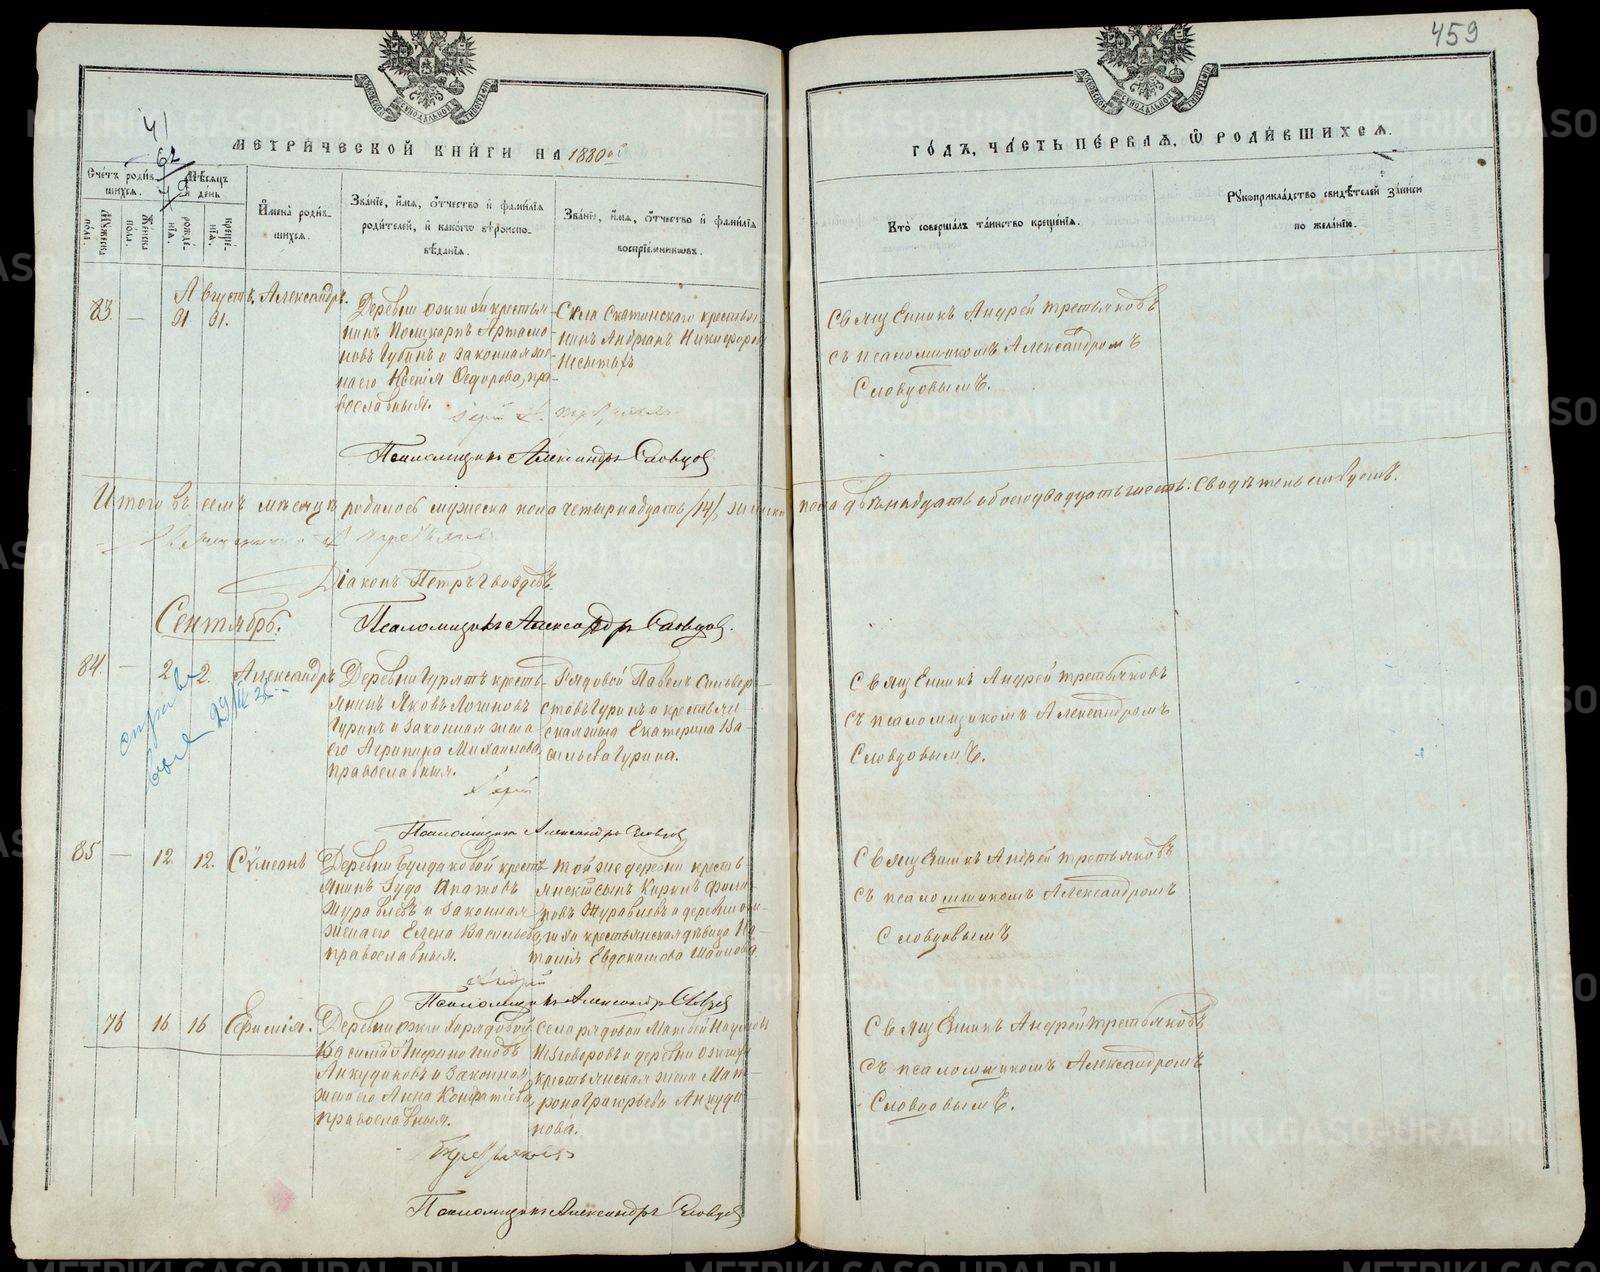 459
МЕТРИ́ЧЕСКОЙ КНИ́ГИ НА 1880й
ГО́ДЪ, ЧА́СТЬ ПЕ́РВАѦ, Ѿ РОДИ́ВШИХСѦ.
41
62
Сче́тъ роди́в-
шихся.
Мѣ́сяцъ
и де́нь
Му́жеска
по́ла.
Же́нска
по́ла.
рожде́-
нія.
креще́-
нія.
И҆мена̀ роди́в-
шихся.
Зва́ніе, и҆́мя, ѻ҆́тчество и҆ фами́лія
роди́телей, и҆ како́гѡ вѣроиспо-
вѣ́данія.
Зва́ніе, и҆́мя, ѻ҆́тчество и҆ фами́лія
воспріе́мникωвъ.
Кто̀ соверша́лъ та́инство креще́нія.
Рꙋкоприкла́дство свидѣ́телей за́писи
по жела́нію.
83. — Августъ. Александръ.
31. 31.
Деревни Ожгихи крестья
нинъ Поликарпъ Артамо-
новъ Губинъ и законная же-
на его Ксенія Ѳедорова, пра-
вославныя.
Села Скатинскаго крестья-
нинъ Андріанъ Никифоровъ
Несытыхъ
Священникъ Андрей Третьяковъ
съ псаломщикомъ Александромъ
Словцовымъ.
Псаломщикъ Александръ Словцов
Итого въ семъ мѣсяцѣ родилось мужеска пола четырнадцать /14/, женска пола двѣнадцать обоего двадцать шесть: Свидѣтельствуемъ.
Діаконъ Петръ Гвоздевъ.
Сентябрь.
Псаломщикъ Александръ Словцов.
84. — 2 2. Александръ
Деревни Гурятъ кресть-
янинъ Яковъ Логиновъ
Гуринъ и законная жена
его Агрипина Михаилова,
православныя.
Рядовой Павелъ Сильвер-
стовъ Гуринъ и крестьян-
ская жена Екатерина Ва-
сильева Гурина.
Священникъ Андрей Третьяковъ
съ псаломщикомъ Александромъ
Словцовымъ.
Псаломщикъ Александръ Словцов
85 — 12. 12. Сѵмеонъ
Деревни Бундаковой кресть
янинъ Іуда Ипатовъ
Журавлевъ и законная
жена его Елена Васильева,
православныя.
Той же деревни кресть
янскій сынъ Карпъ Фили-
повъ Журавлевъ и деревни Ожги-
гихи крестьянская дѣвица На-
талія Евдокимова
Священникъ Андрей Третьяковъ
съ псаломщикомъ Александромъ
Словцовымъ
Псаломщикъ Александръ Словцов
76 16 16 Ефимія.
Деревни Ожгихи рядовой
Василій Анфиногеновъ
Анкудиновъ и законная
жена его Анна Кондратіева,
православныя.
Села рядовой Матвѣй Наумовъ
Изговоровъ и деревни Ожгихи
крестьянская жена Мат-
рона Григорьева Анкуди-
нова.
Священникъ Андрей Третьяковъ
съ псаломщикомъ Александромъ
Словцовымъ.
Псаломщикъ Александръ Словцов
METRIKI.GASO-URAL.RU